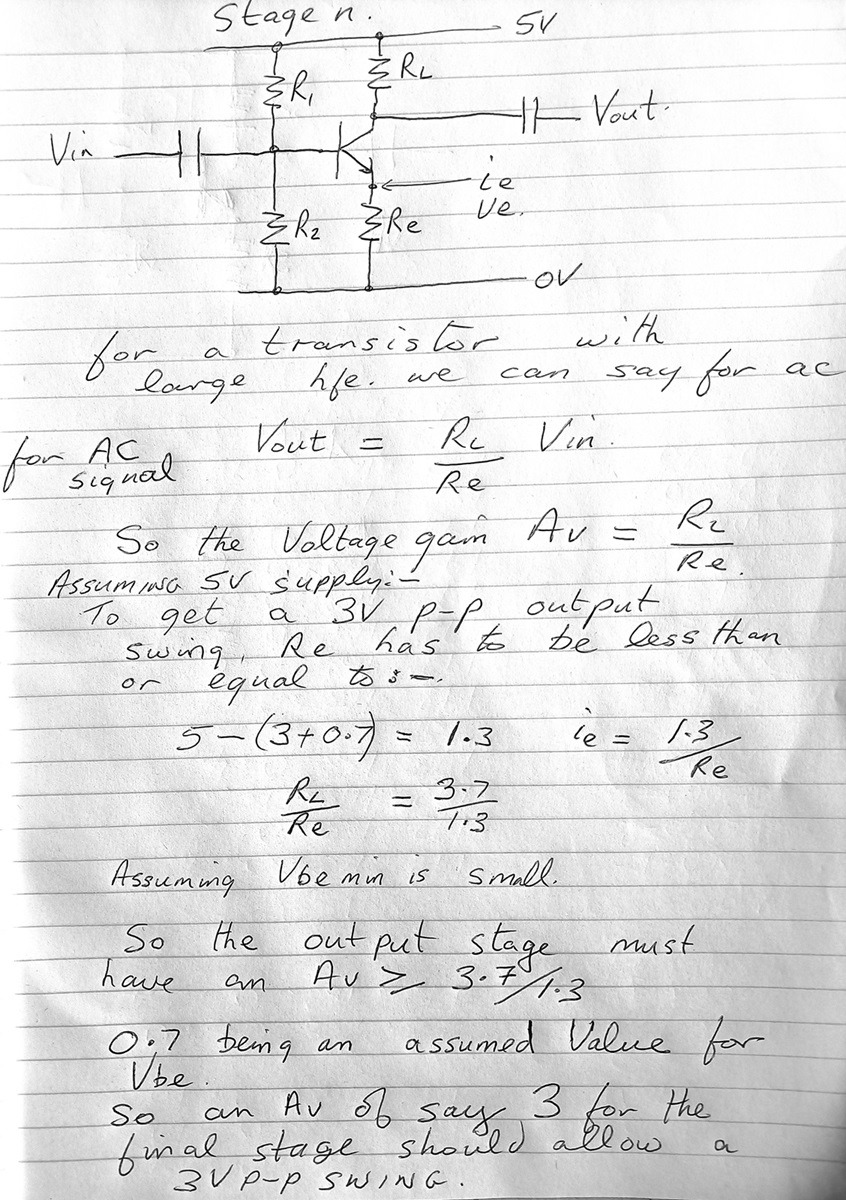 Stage n.
5V
R1
RL
Vin
Vout.
ie
R2
Re
Ve.
0V
for a transistor with
large hfe. we can say for ac
for AC signal Vout = RL/Re Vin.
So the Voltage gain Av = RL/Re.
Assuming 5V supply:-
To get a 3V p-p output
swing, Re has to be less than
or equal to :-.
5-(3+0.7) = 1.3 ie = 1.3/Re
RL/Re = 3.7/1.3
Assuming Vbe min is small.
So the output stage must
have an Av ≥ 3.7/1.3
0.7 being an assumed Value for
Vbe.
So an Av of say 3 for the
final stage should allow a
3V p-p SWING.